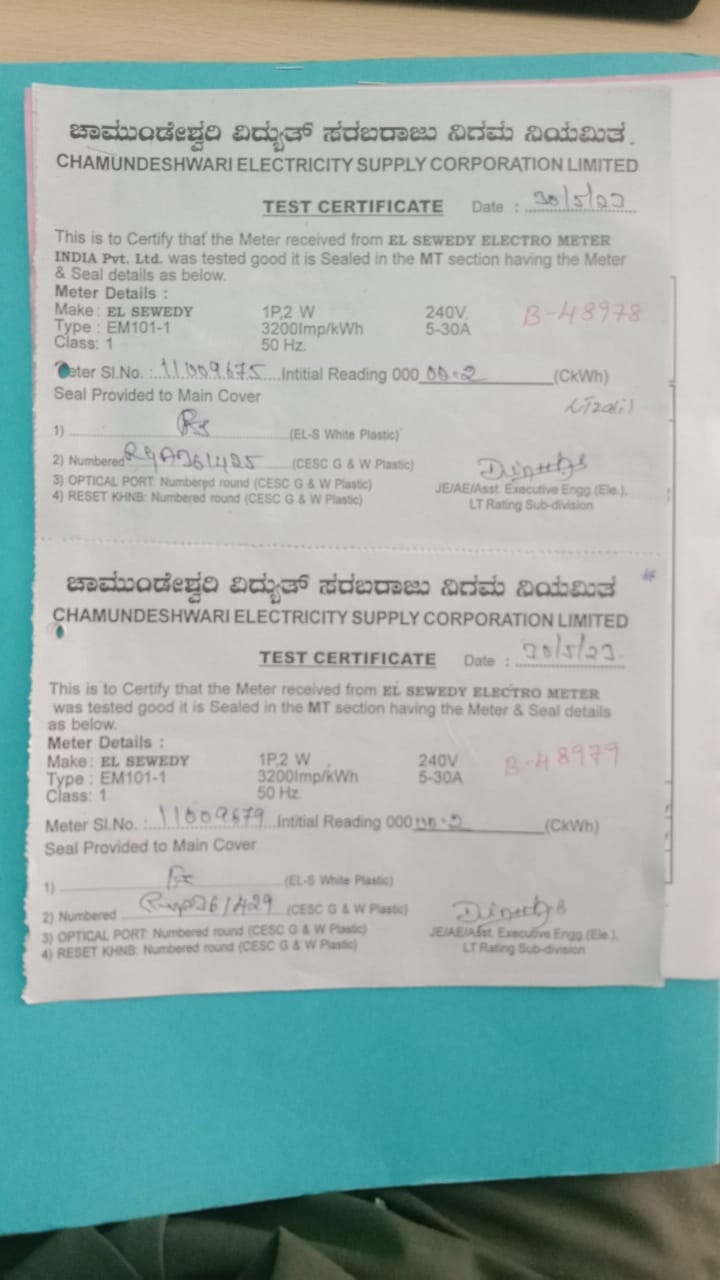 ಚಾಮುಂಡೇಶ್ವರಿ ವಿದ್ಯುತ್ ಸರಬರಾಜು ನಿಗಮ ನಿಯಮಿತ.
CHAMUNDESHWARI ELECTRICITY SUPPLY CORPORATION LIMITED
TEST CERTIFICATE Date : 30/5/23
This is to Certify that the Meter received from EL SEWEDY ELECTRO METER
INDIA Pvt. Ltd. was tested good it is Sealed in the MT section having the Meter
& Seal details as below.
Meter Details :
Make : EL SEWEDY 1P,2 W 240V B-48978
Type : EM101-1 3200Imp/kWh 5-30A
Class: 1 50 Hz.
eter Sl.No. : 11009675 Intitial Reading 000 00.2 (CkWh)
Seal Provided to Main Cover
1) (EL-S White Plastic)
2) Numbered (CESC G & W Plastic)
3) OPTICAL PORT: Numbered round (CESC G & W Plastic)
4) RESET KHNB: Numbered round (CESC G & W Plastic)
JE/AE/Asst. Executive Engg.(Ele.),
LT Rating Sub-division
ಚಾಮುಂಡೇಶ್ವರಿ ವಿದ್ಯುತ್ ಸರಬರಾಜು ನಿಗಮ ನಿಯಮಿತ
CHAMUNDESHWARI ELECTRICITY SUPPLY CORPORATION LIMITED
TEST CERTIFICATE Date : 30/5/23
This is to Certify that the Meter received from EL SEWEDY ELECTRO METER
was tested good it is Sealed in the MT section having the Meter & Seal details
as below.
Meter Details :
Make : EL SEWEDY 1P,2 W 240V B-48979
Type : EM101-1 3200Imp/kWh 5-30A
Class: 1 50 Hz.
Meter Sl.No. : 11009679 Intitial Reading 000 00.2 (CkWh)
Seal Provided to Main Cover
1) (EL-S White Plastic)
2) Numbered (CESC G & W Plastic)
3) OPTICAL PORT: Numbered round (CESC G & W Plastic)
4) RESET KHNB: Numbered round (CESC G & W Plastic)
JE/AE/Asst. Executive Engg.(Ele.),
LT Rating Sub-division